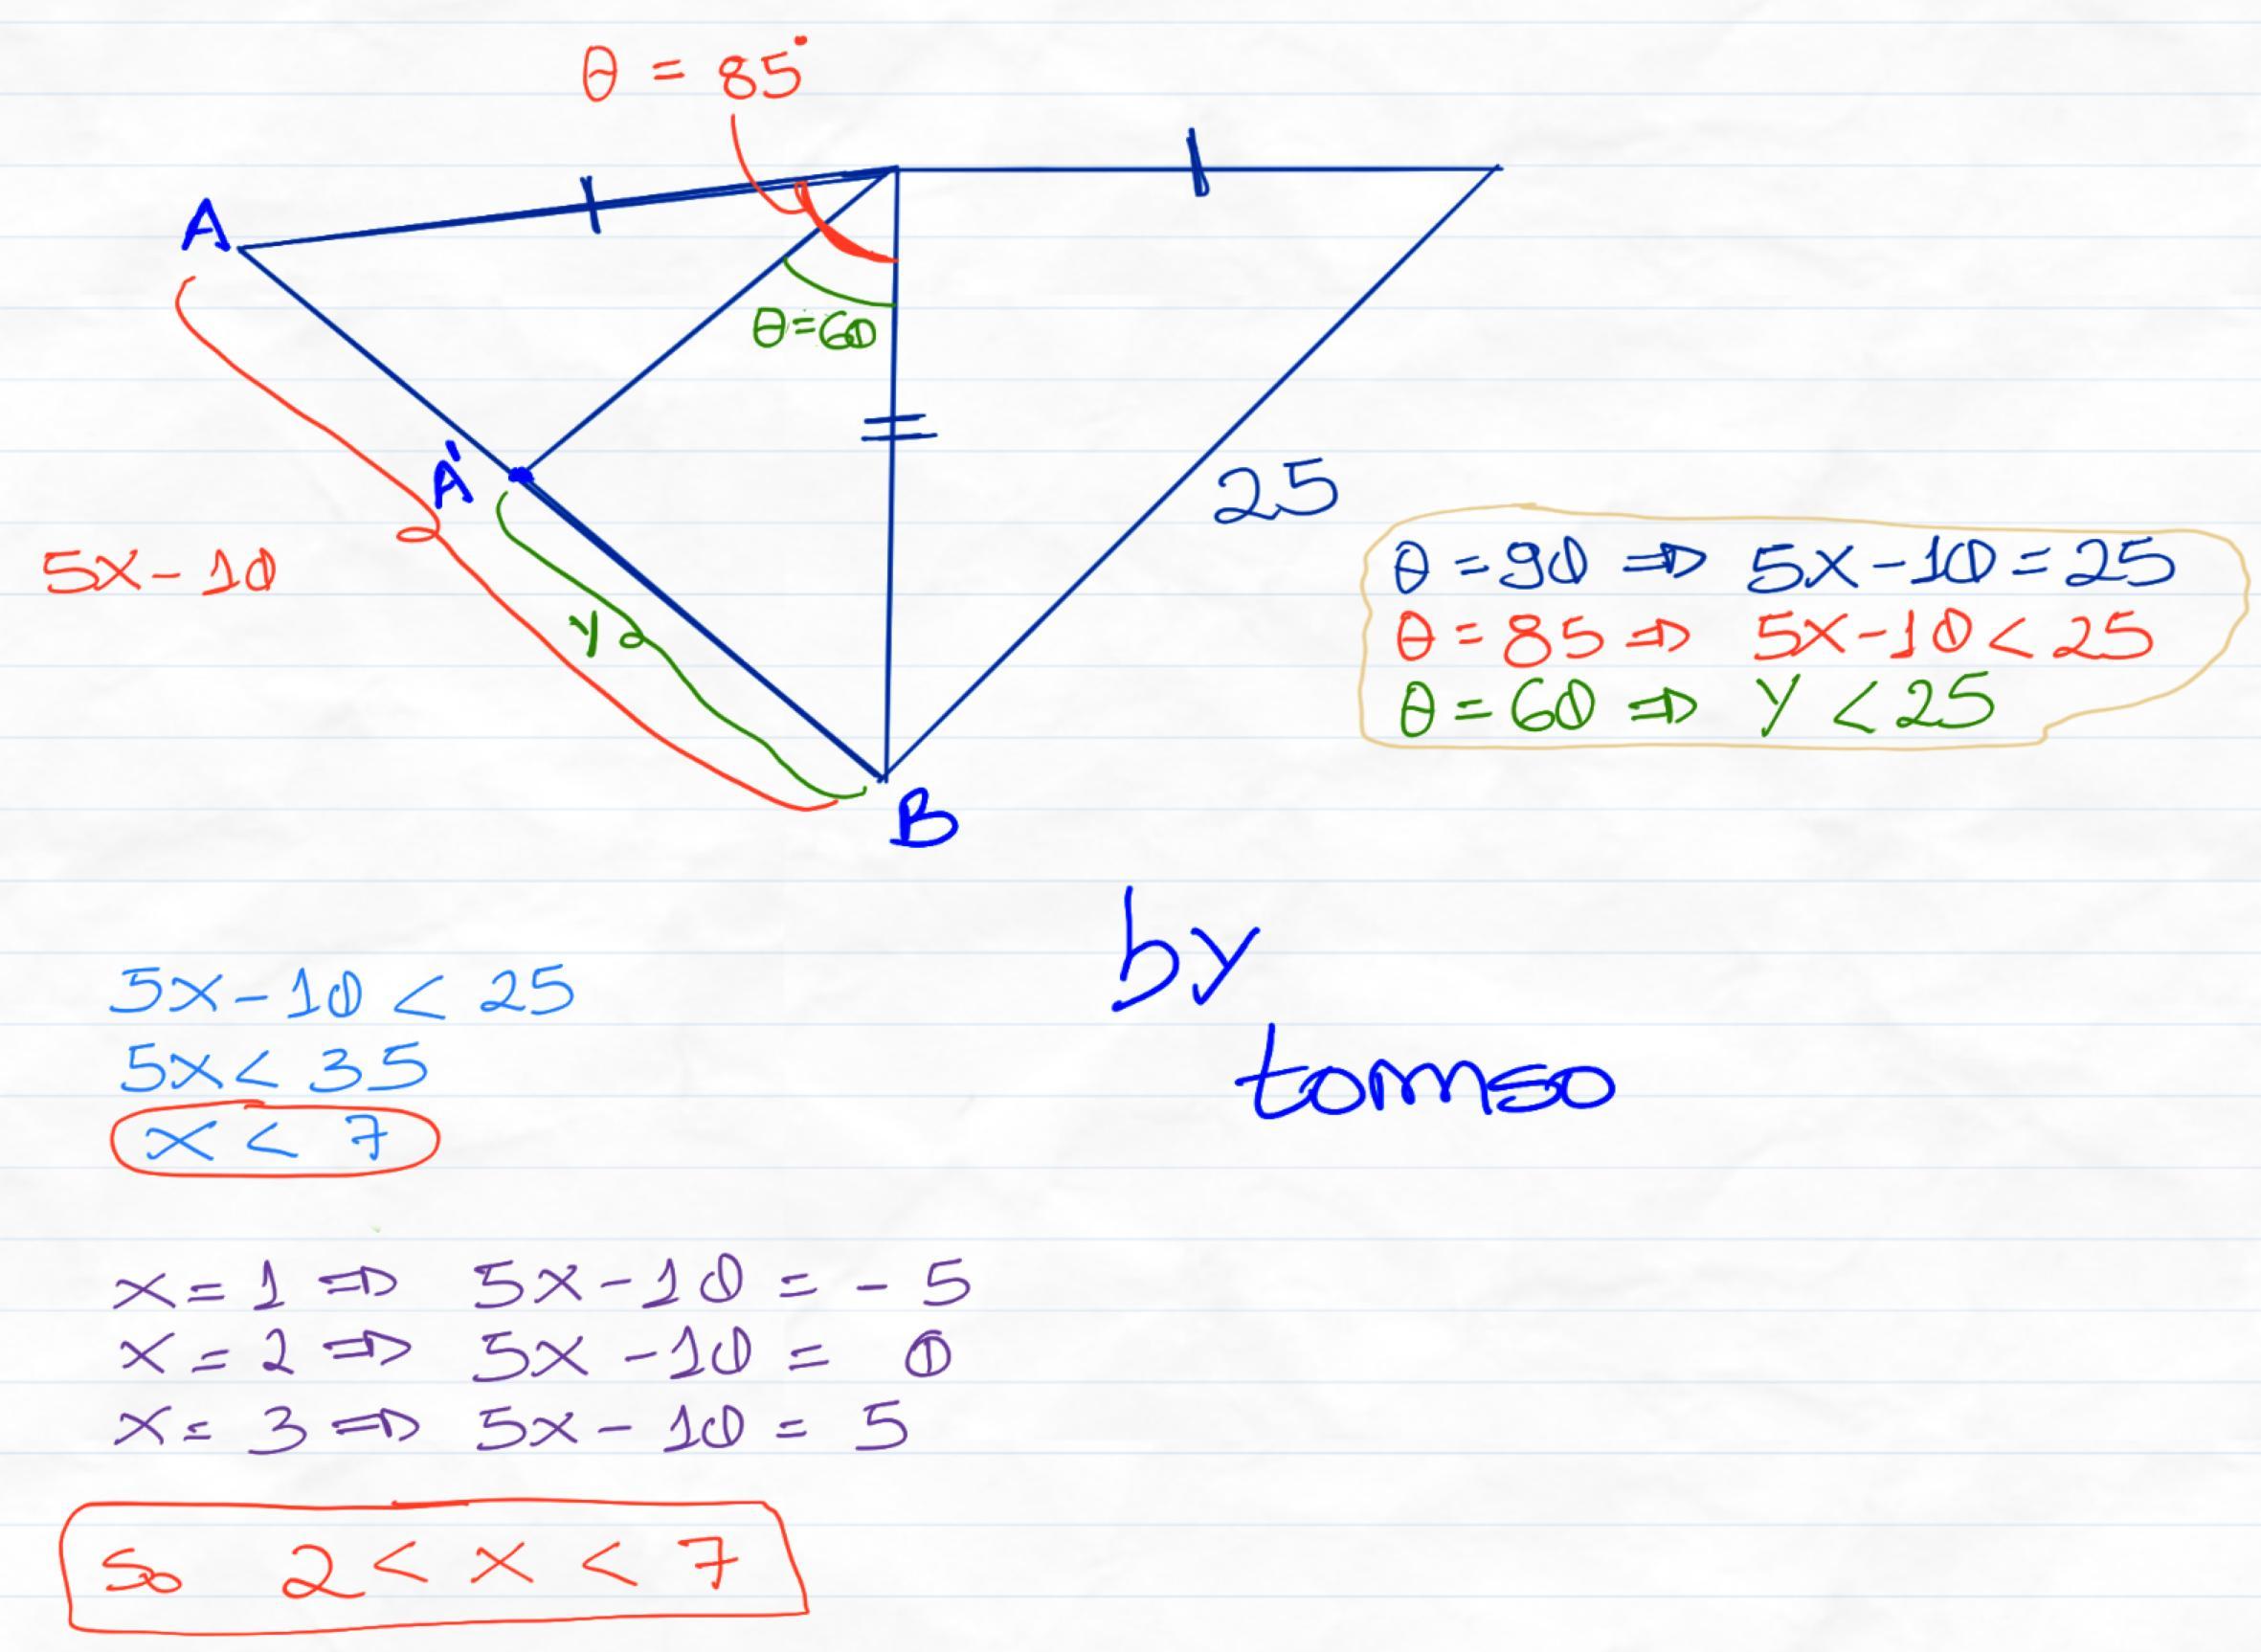 θ = 85°
A
θ=60
A'
25
5x-10
y
θ = 90 ⇒ 5x-10 = 25
θ = 85 ⇒ 5x-10 < 25
θ = 60 ⇒ y < 25
B
by
tomso
5x-10 < 25
5x < 35
x < 7
x = 1 ⇒ 5x-10 = -5
x = 2 ⇒ 5x-10 = 0
x = 3 ⇒ 5x-10 = 5
so 2 < x < 7